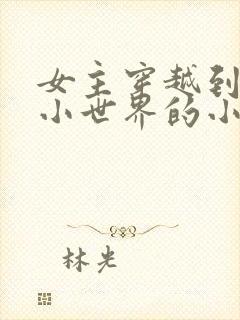 女主穿越到
小世界的小
林光